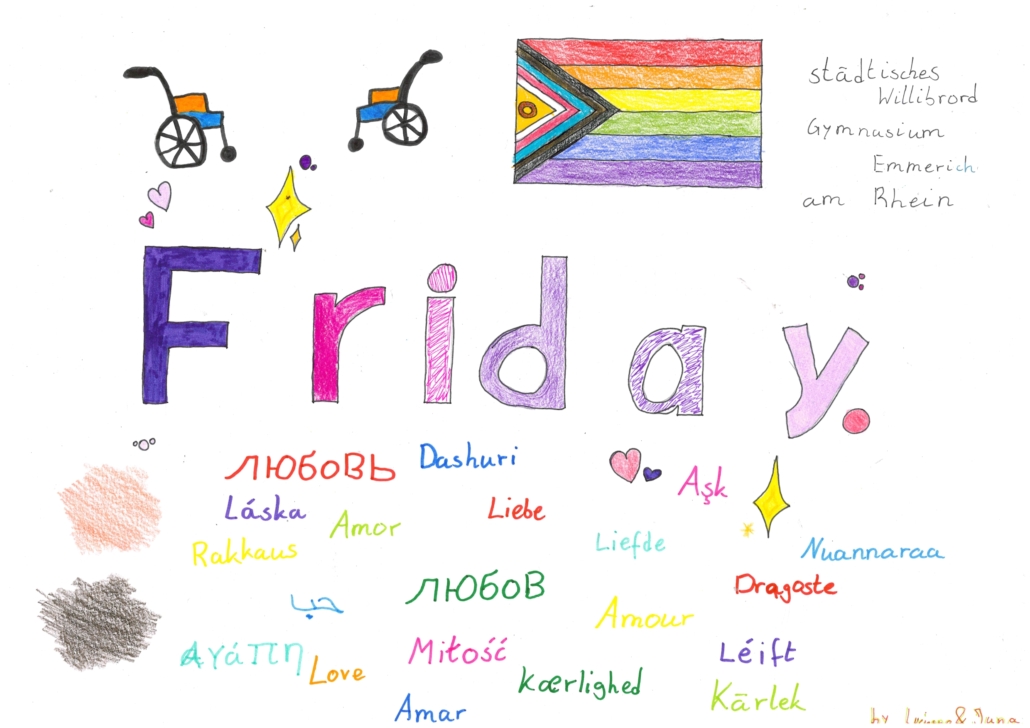 städtisches
Willibrord
Gymnasium
Emmerich
am Rhein
Friday.
любовь
Dashuri
Aşk
Láska
Amor
Liebe
Rakkaus
Liefde
Nuannaraa
любов
Dragoste
حب
Amour
Αγάπη
Love
Miłość
Léift
Kærlighed
Kärlek
Amar
by & Jana